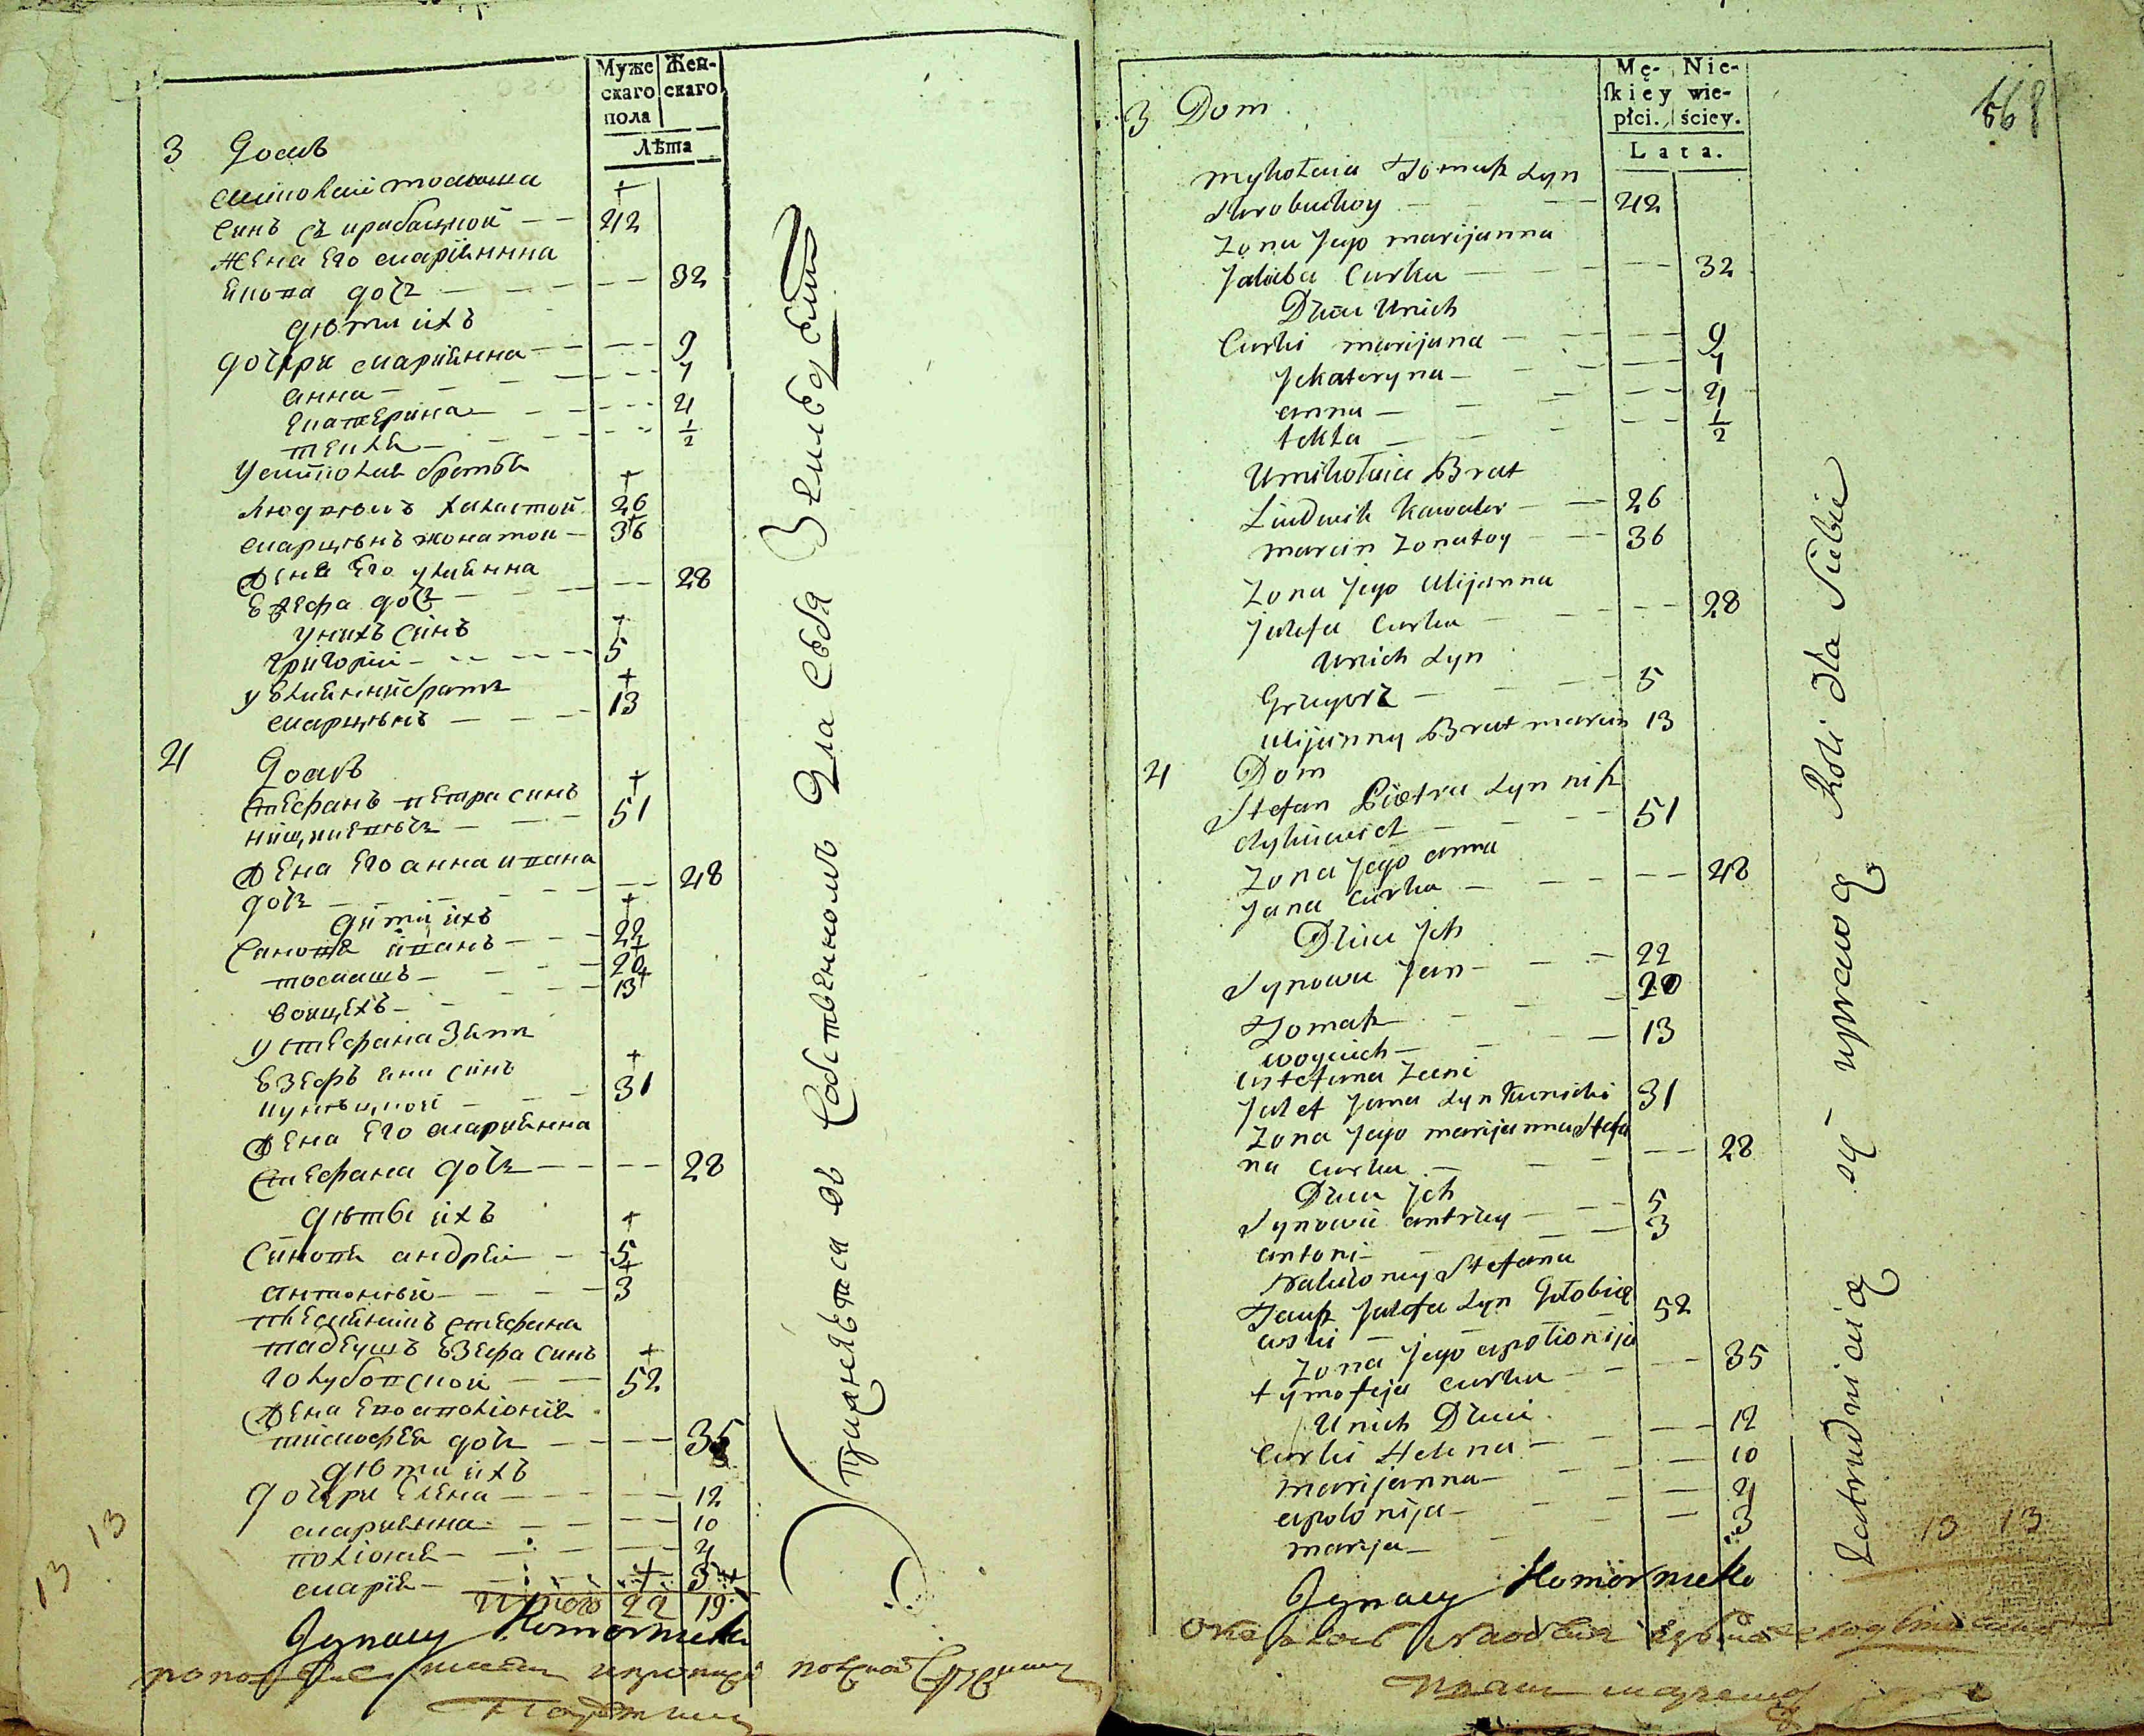 Муже
скаго
пола
Жен-
скаго
Лѣта
3 Домъ
Миколай томаша +
Синъ Скрибацкой — — 42
Жена Его Мариянна
Якова дочь — — 32
Дѣти ихъ
Дочери Марианна — — 9
анна — — 7
Екатерина — — 4
текла — — 1/2
У Миколая братья +
Людвикъ холостой 26
Марцѣнъ жонатой — 36
Жена Его улианна
Езефа дочь — — 28
У нихъ Синъ +
Григорий — — 5
У улианни братъ +
Марцѣнъ — — 13
4 Домъ
Стефанъ петра Синъ +
— — 51
Жена Его анна ивана
дочь — — 48
Дити ихъ +
Синовя иванъ — — 22
томашъ — — 20
войцехъ — — 13
У Стефана Зять
Езефъ яна Синъ +
— — 31
Жена Его Марианна
Стефана дочь — — 28
Дѣтви ихъ +
Синовя андрей — — 5
Антонѣй — — 3
племянникъ Стефана
тадеушъ Езефа Синъ +
Голубовской — — 52
Жена Его аполіония
тимофея дочь — — 35
Дѣти ихъ
Дочери Елена — — 12
марианна — — 10
полония — — 4
мария — — 3
Итого 22 19
Jgnacy Komornicki
Упражняется въ Собственномъ Для Себя Земледелии
13 13
Mę-
ſkiey
płci.
Nie-
wie-
ściey.
Lata.
568
3 Dom
Mykołaia Tomaſz Syn
Skrobuckoy — — 42
Zona Jego marijanna
Jakuba Curka — — 32
Dzieci Unich
Curki marijana — — 9
Jekateryna — — 7
anna — — 4
tekla — — 1/2
Umikołaia Brat
Ludwik Kawaler — — 26
marcin Zonatoy — — 36
Zona Jego Ulijanna
Juzefa Curka — — 28
Unich Syn
Grzegorz — — 5
Ulijanny Brat marcin 13
4 Dom
Stefan Piotra Syn niſz
— — 51
Zona Jego anna
Jana Curka — — 48
Dzieci Jch
Synowie Jan — — 22
Tomaſz — — 20
Woyciech — — 13
Ustefana Zienc
Juzef Jana Syn Kunicki 31
Zona Jego marijanna Stefa
na Curka — — 28
Dzieci Jch
Synowie antrzey — — 5
antoni — — 3
Stefana
Juzefa Syn Gołobia 52
wski
Zona Jego apolionija
tymofeja curka — — 35
Unich Dzieci
Curki Helena — — 12
marijanna — — 10
apolonija — — 4
marija — — 3
Jgnacy Komornicki
Zatrudniaią się uprawą Roli dla Siebie
13 13